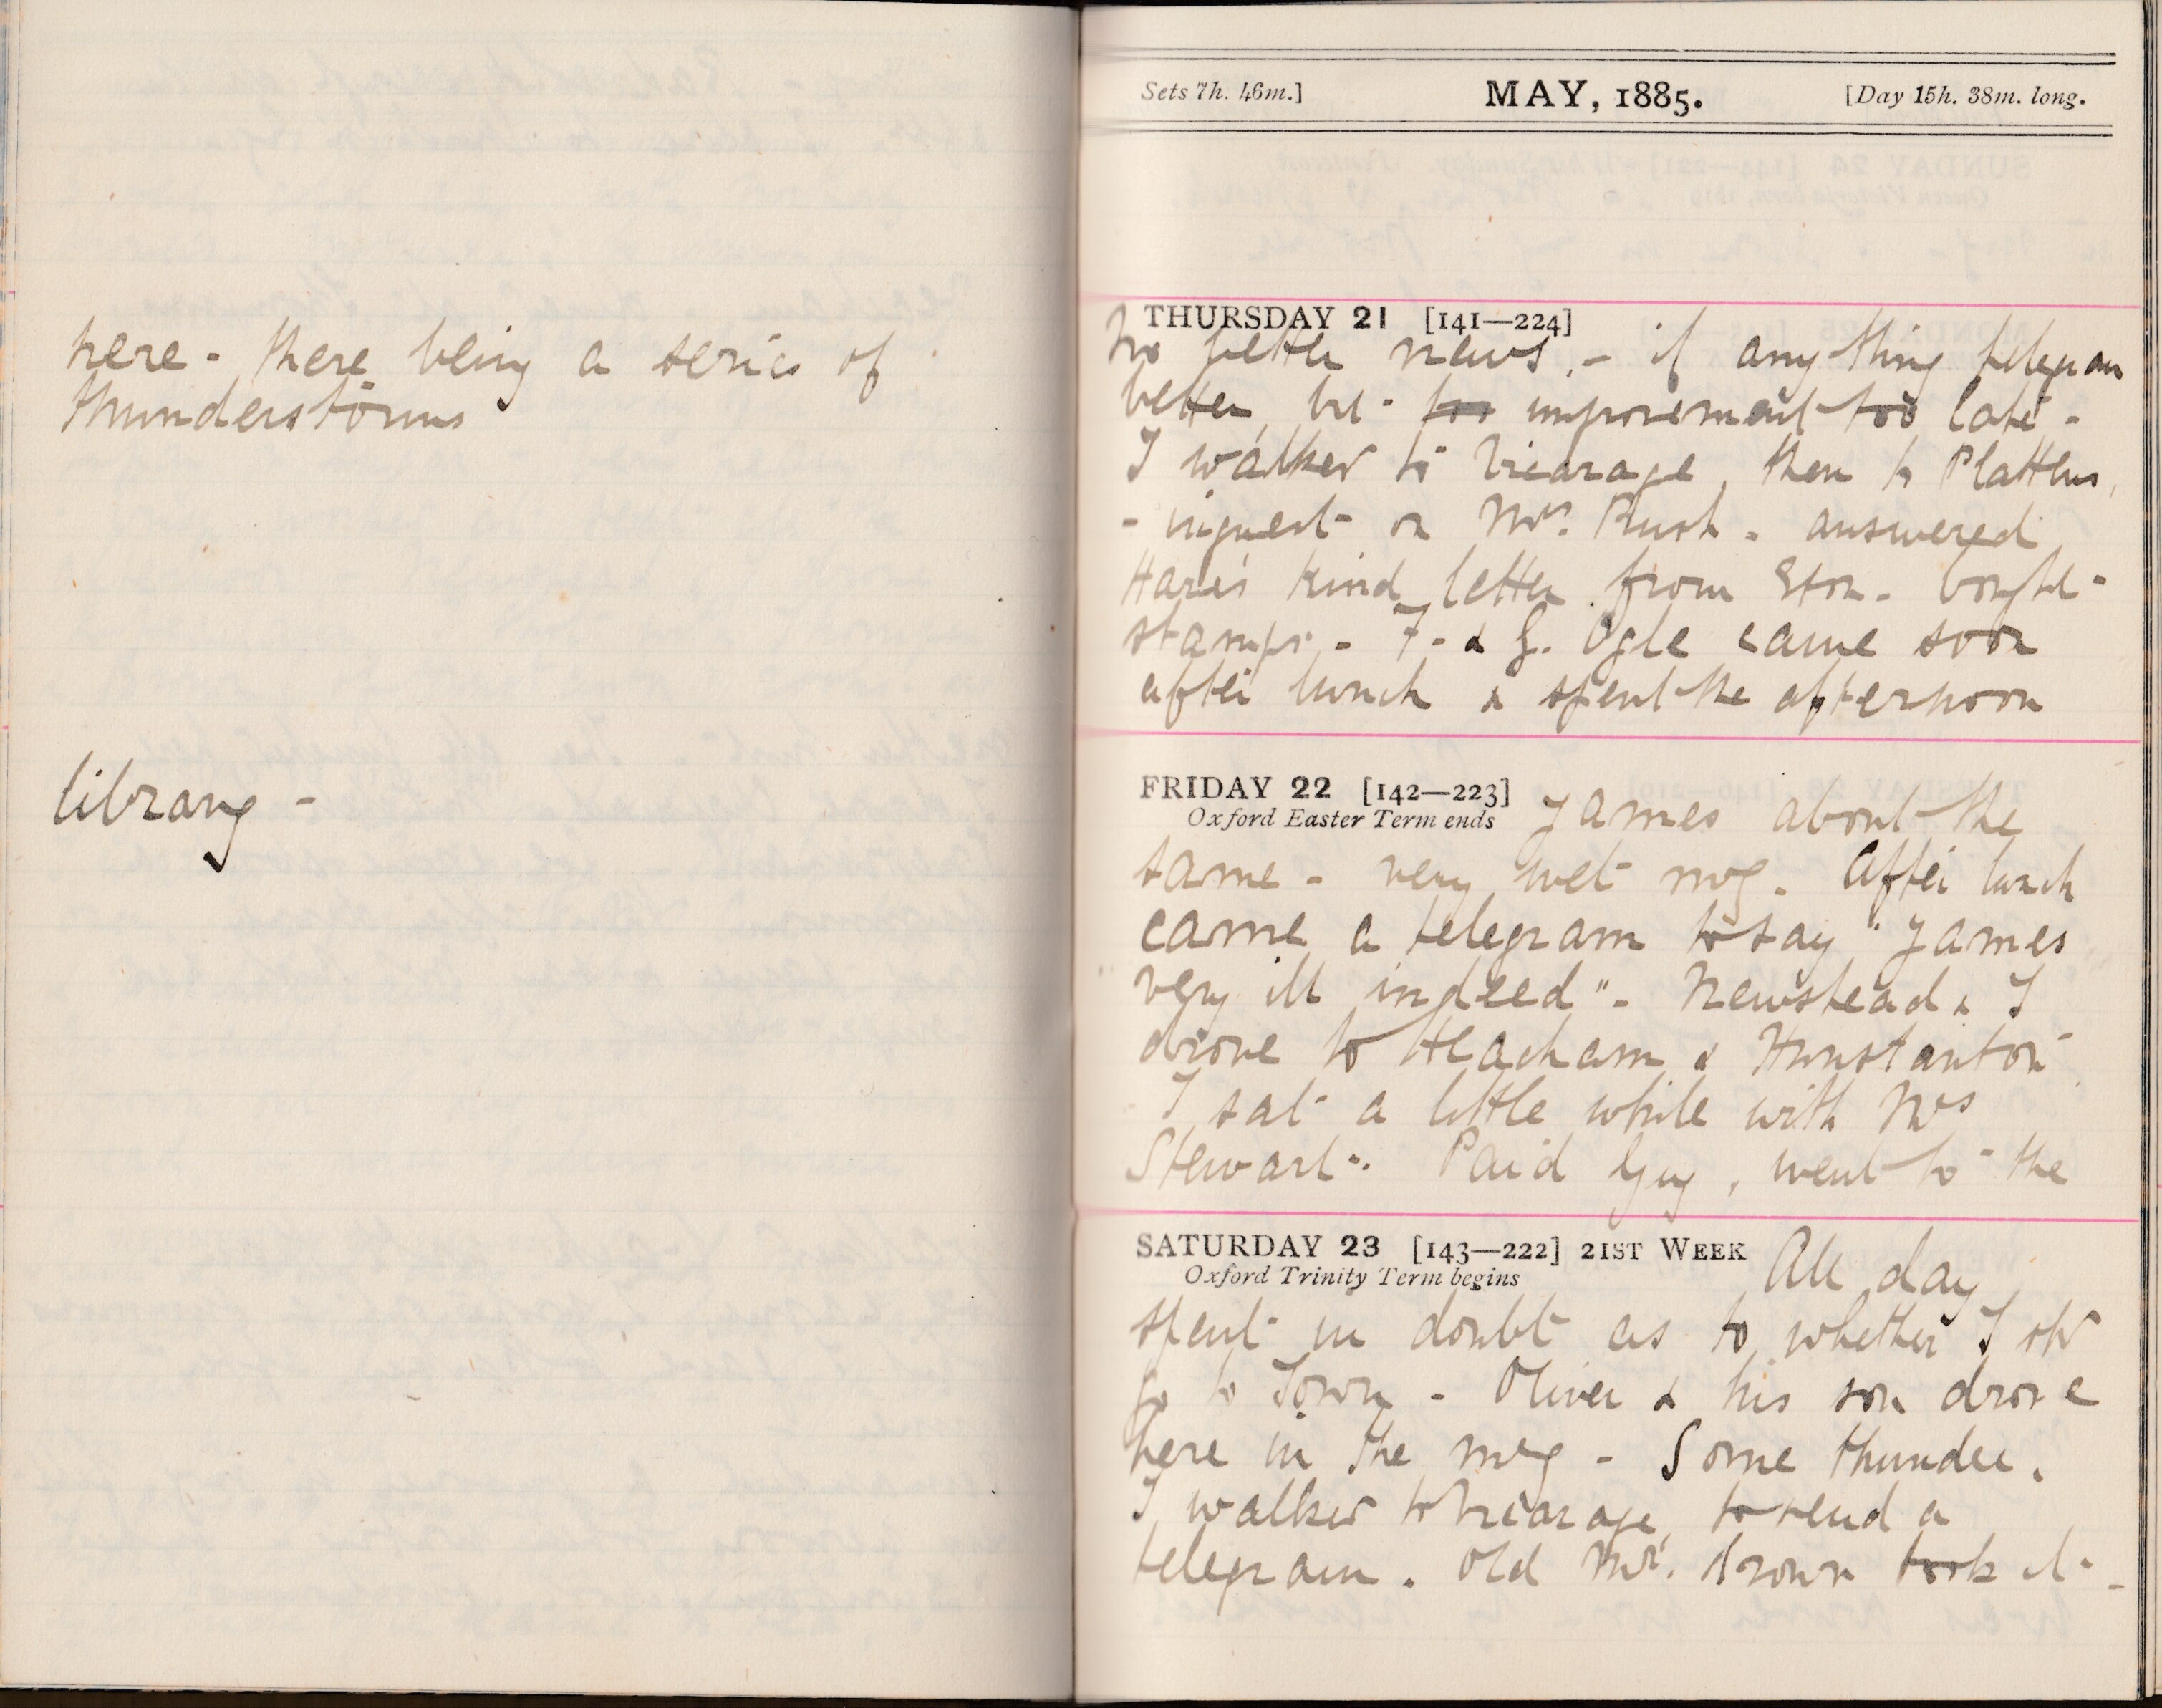 here - there being a series of
thunderstorms
library -
Sets 7h. 46m.] MAY, 1885. [Day 15h. 38m. long.
THURSDAY 21 [141—224]
No better news, - if any thing telegram
better, but too improvement too late -
I walked to Vicarage, then to Plattens,
- inquest on Mrs. Rush - answered
Hare's kind letter from Eton - bought
stamps - F- & G. Ogle came soon
after lunch & spent the afternoon
FRIDAY 22 [142—223]
Oxford Easter Term ends James about the
same - very wet mg. After lunch
came a telegram to say "James
very ill indeed" - Newstead & I
drove to Heacham & Hunstanton
I sat a little while with Mrs
Stewart. Paid Guy, went to the
SATURDAY 23 [143—222] 21ST WEEK All day
Oxford Trinity Term begins
spent in doubt as to whether I shd
go to Town - Oliver & his son drove
here in the mg - Some thunder.
I walked to Vicarage, to send a
telegram. Old Mr. Brown took it -